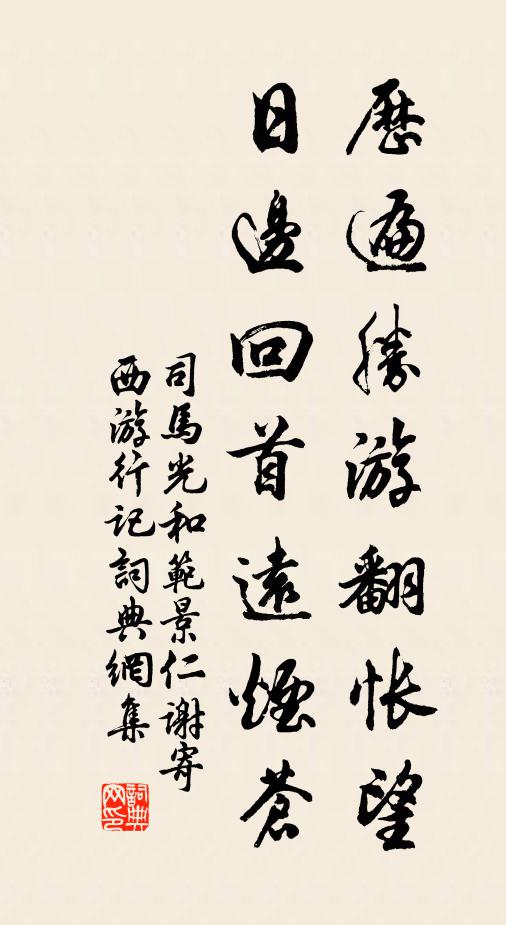 歷遍勝游翻悵望
日邊回首遠煙蒼
司馬光和範景仁謝寄
西游行記詞典網集
詞典
网印